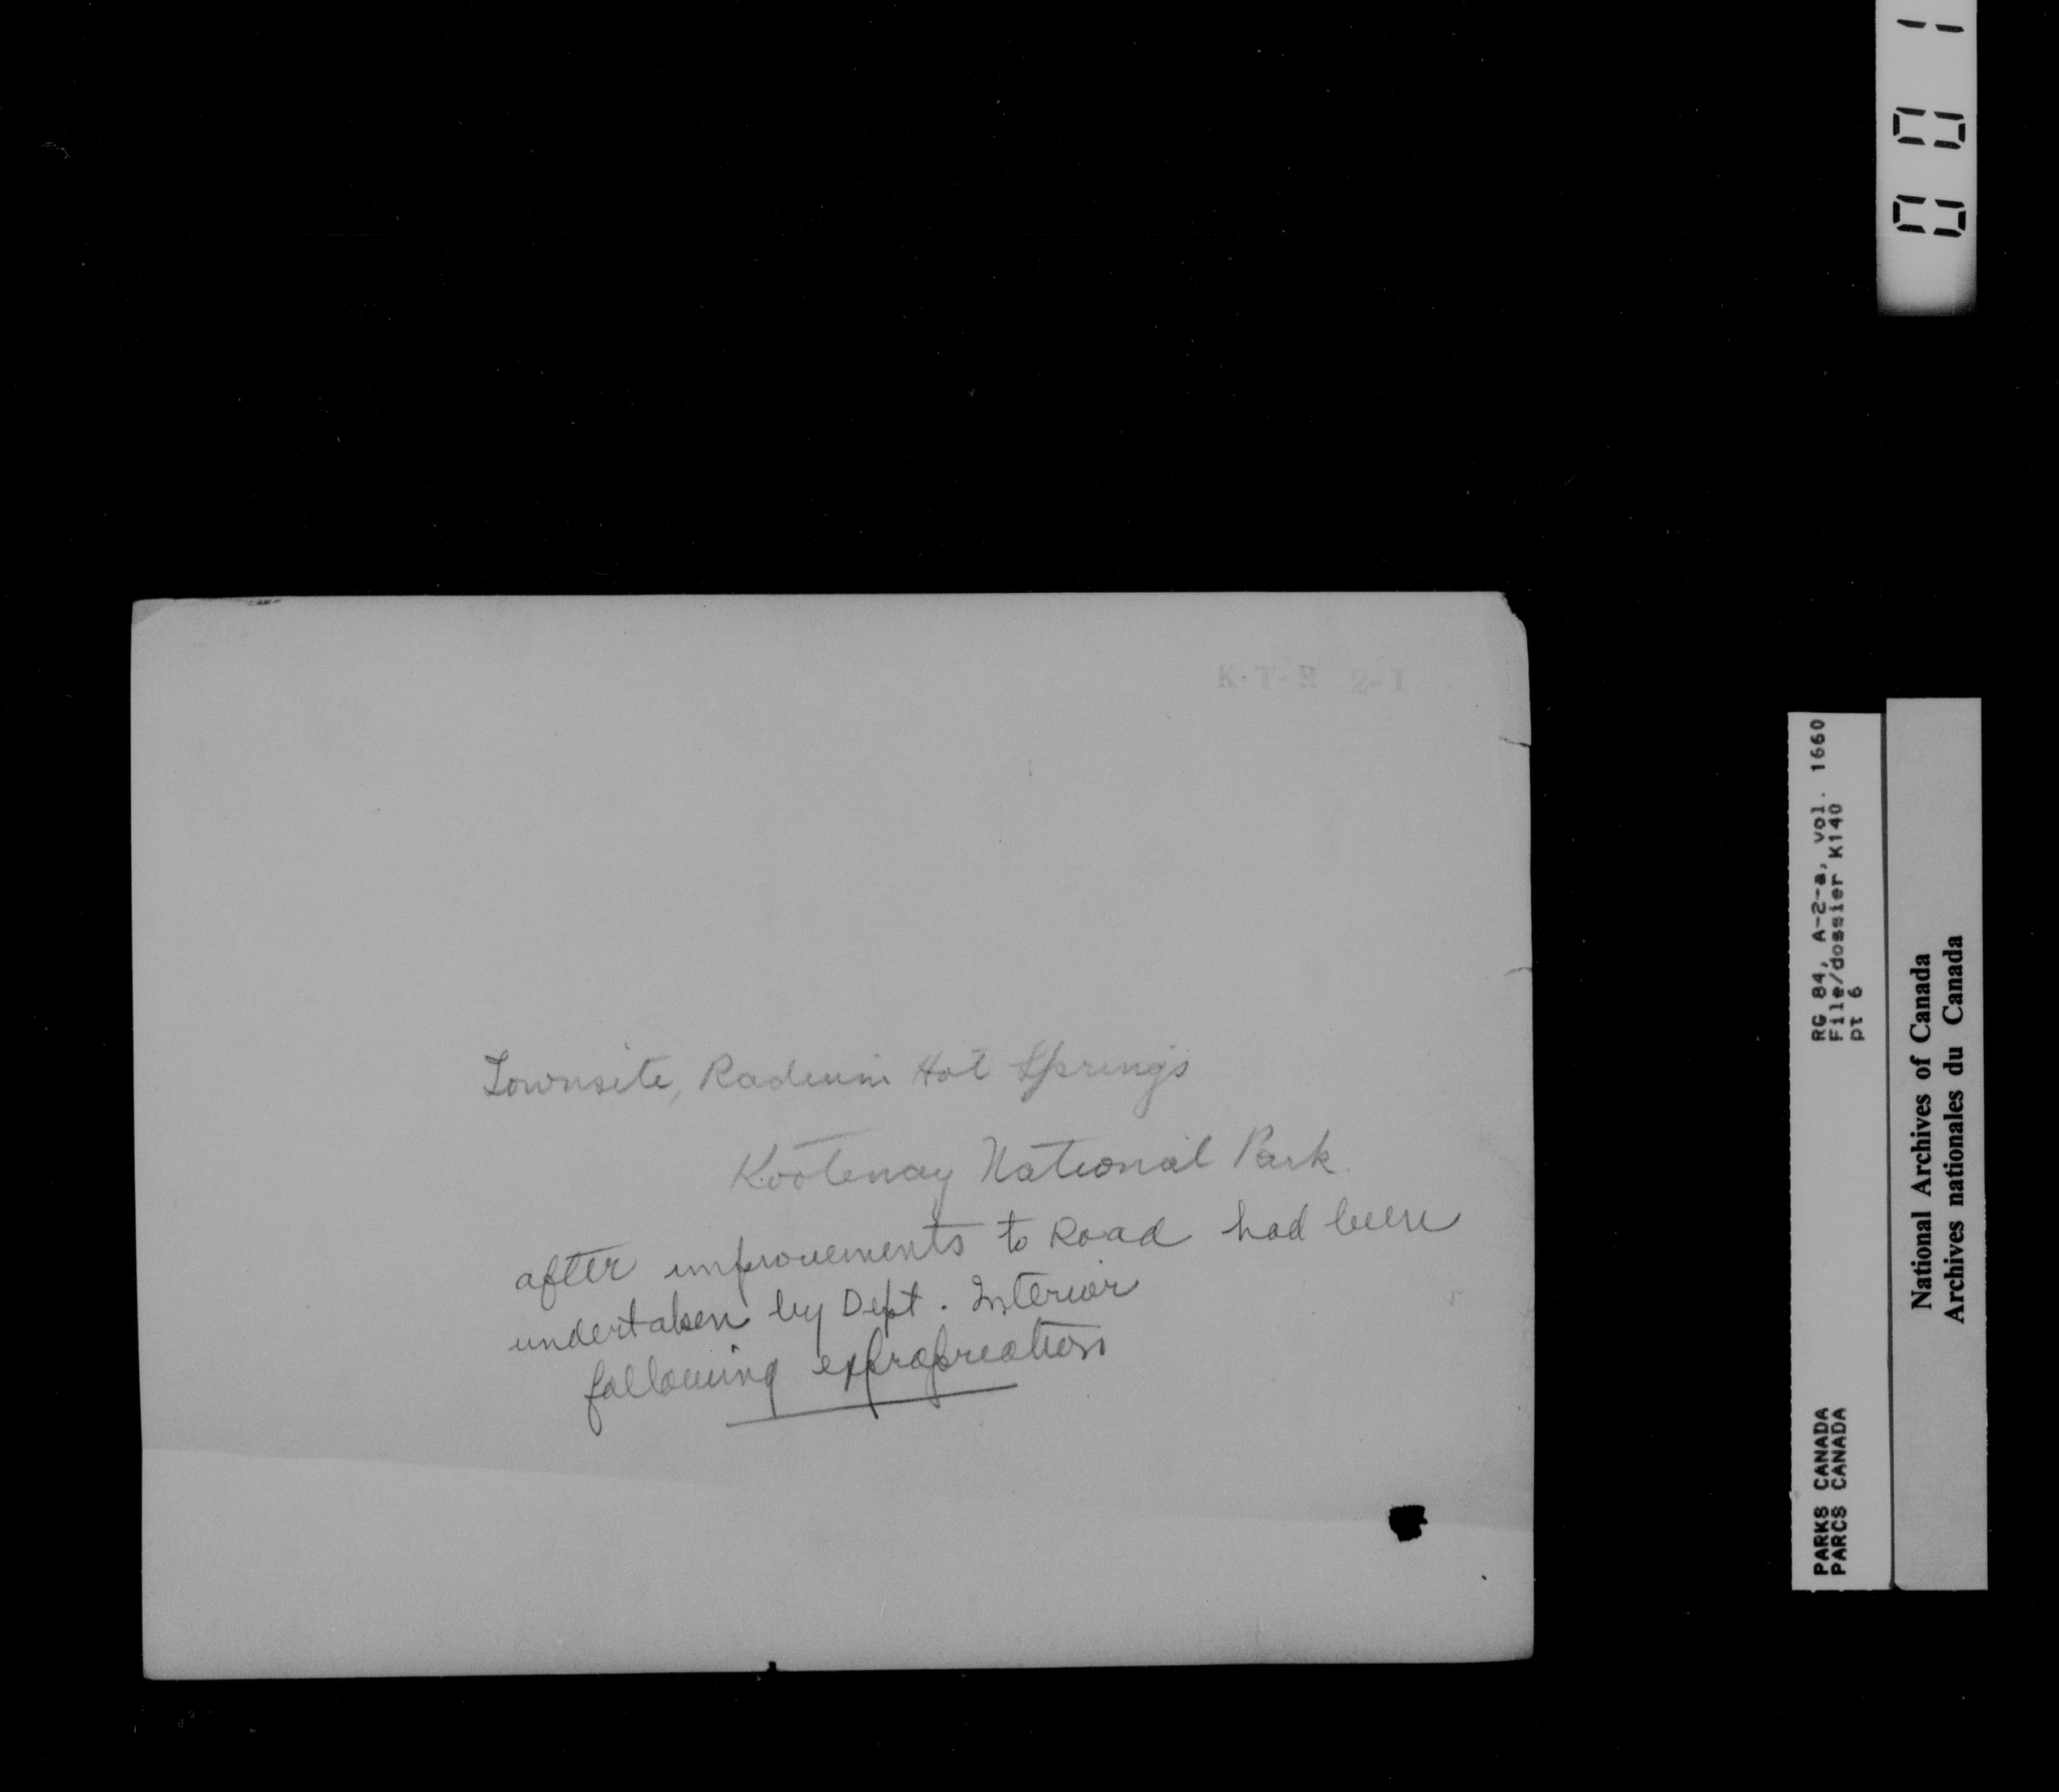 K-T-R 2-1
Townsite, Radium Hot Springs
Kootenay National Park.
after improvements to Road had been
undertaken by Dept. Interior
following expropriation
001
RG 84, A-2-a, vol. 1660
File/dossier K140
pt 6
PARKS CANADA
PARCS CANADA
National Archives of Canada
Archives nationales du Canada